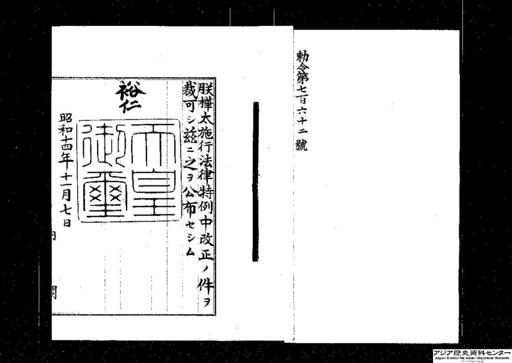 勅令第七百六十二號
朕樺太施行法律特例中改正ノ件ヲ
裁可シ玆ニ之ヲ公布セシム
裕仁
天皇
御璽
昭和十四年十一月七日
アジア歴史資料センター
Japan Center for Asian Historical Records